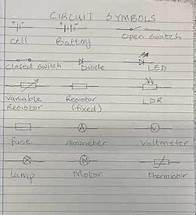 CIRCUIT SYMBOLS
Cell Battery Open Switch
Closed Switch Diode LED
Variable Resistor LDR
Resistor (fixed)
Fuse Ammeter Voltmeter
Lamp Motor Thermistor